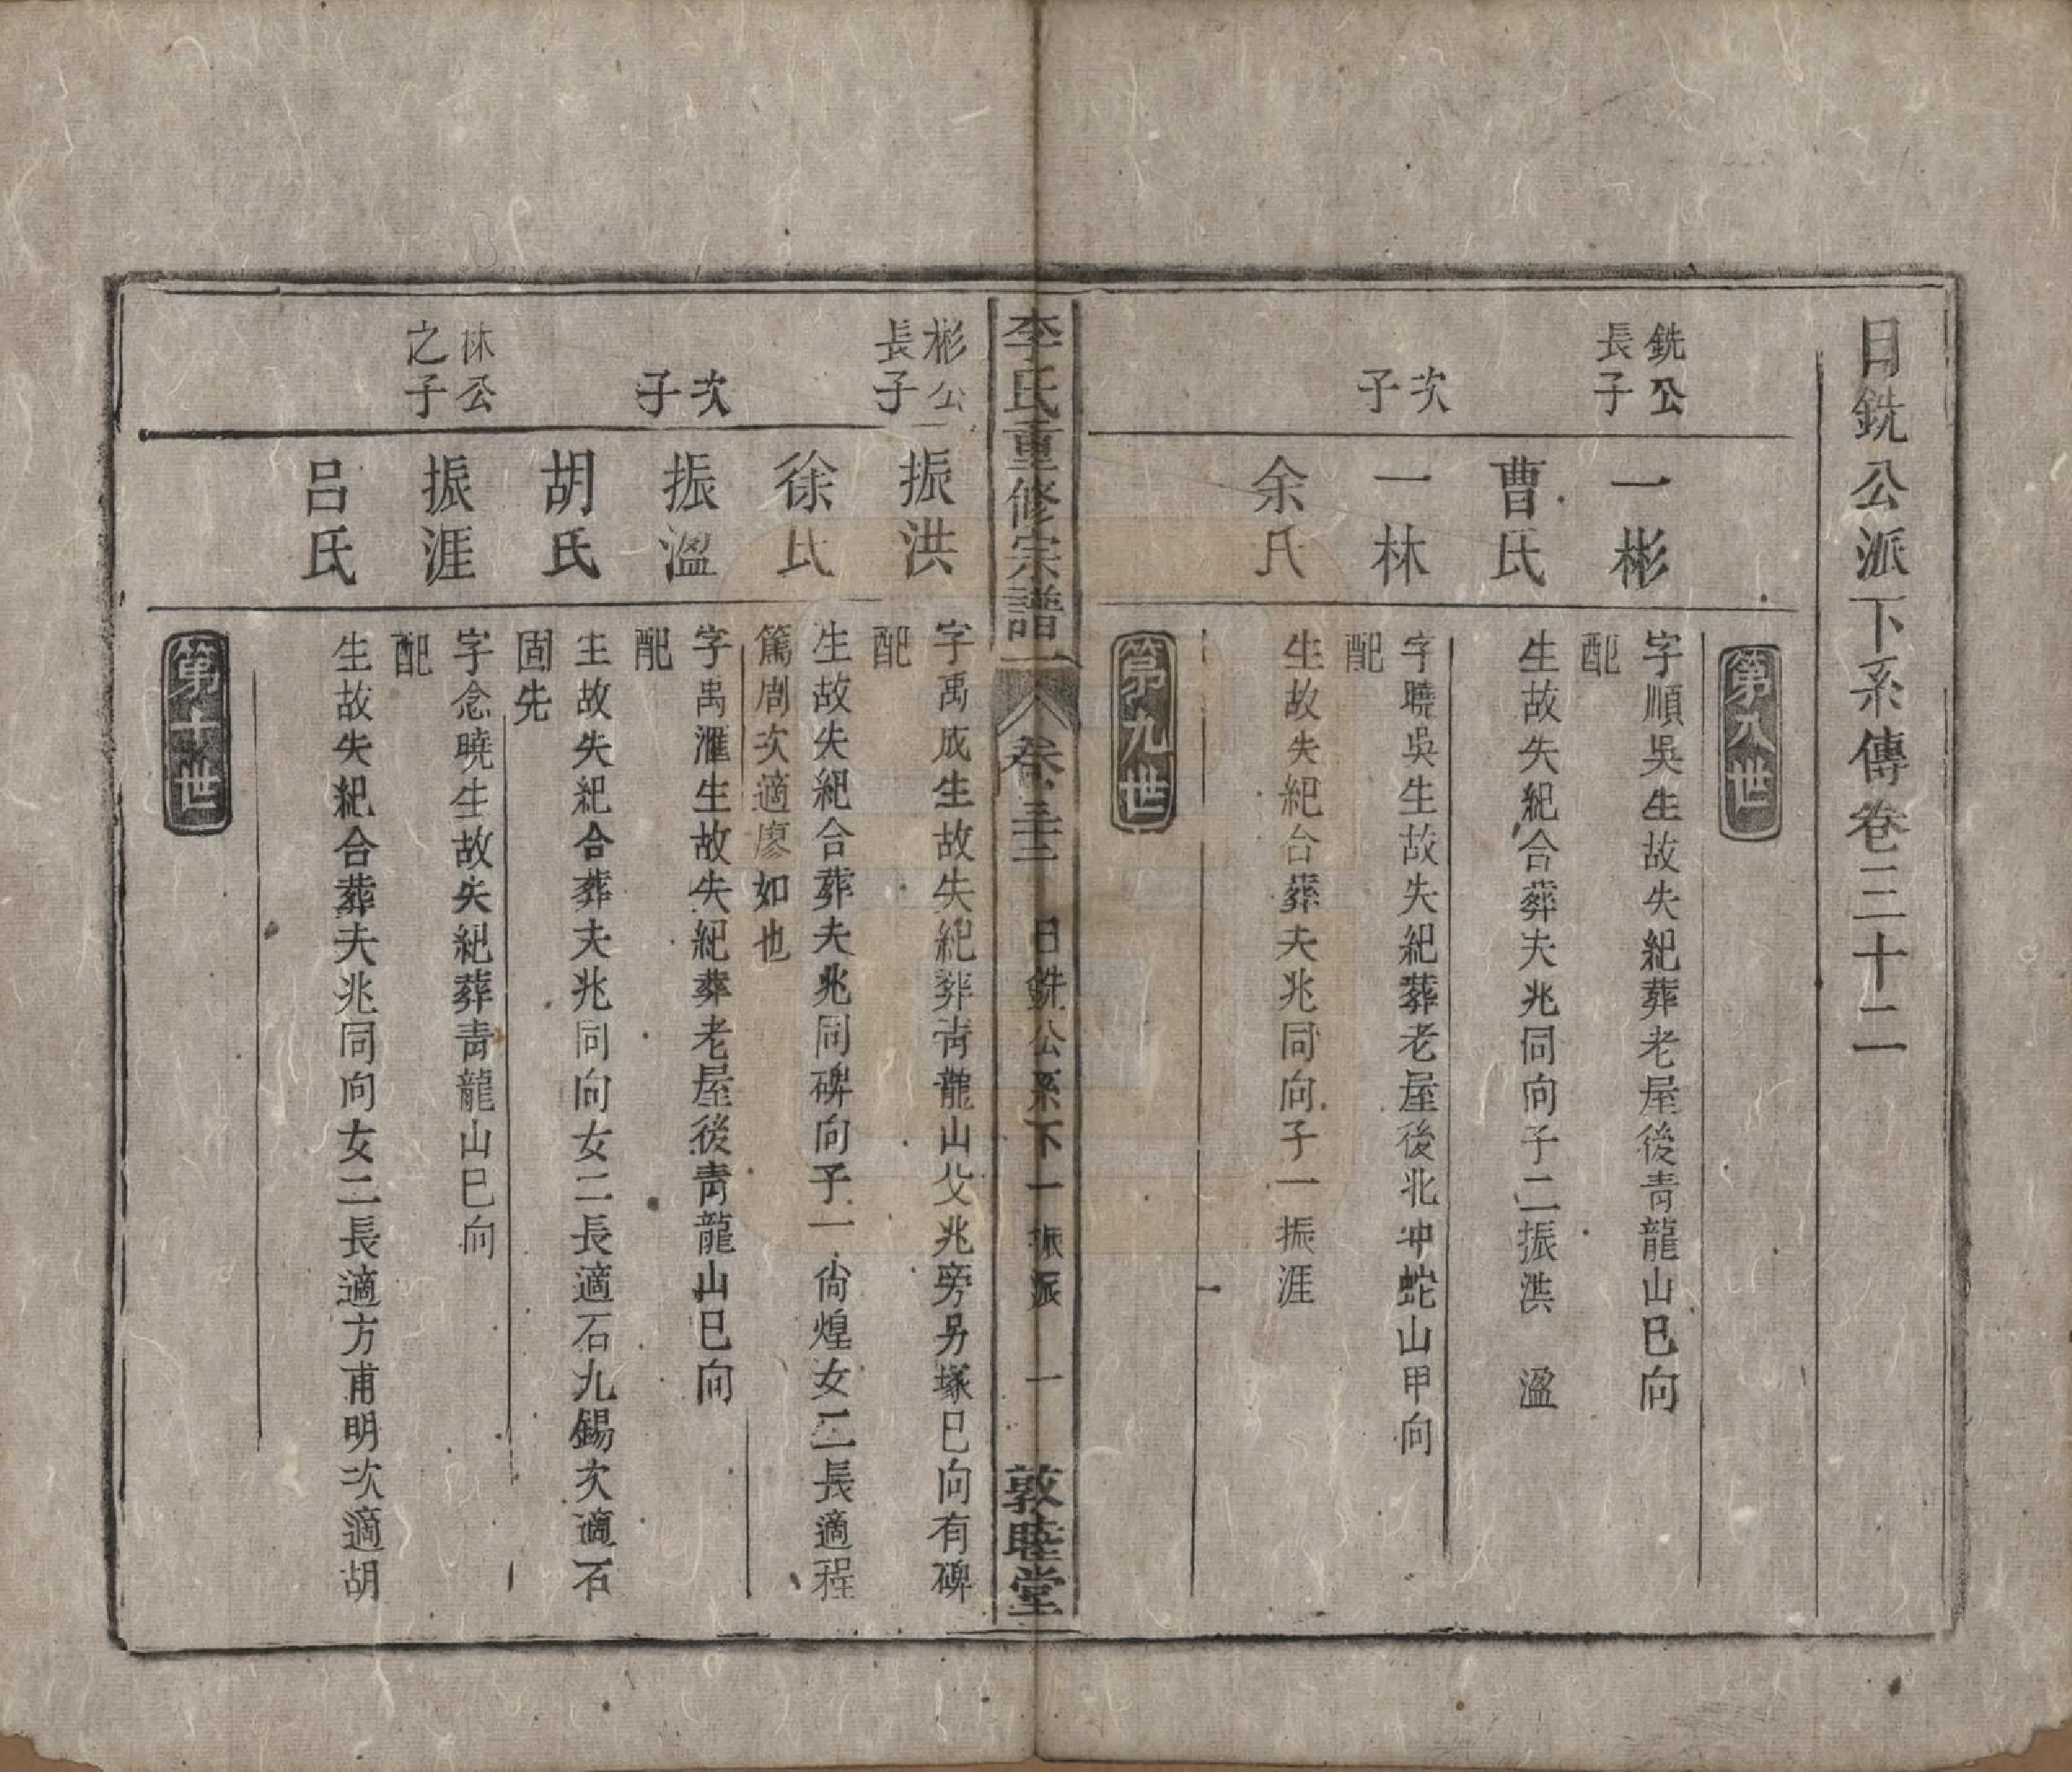 日銑公派下系傳卷三十二
第八世
銑公
長子
一彬
字順吳生故失紀葬老屋後青龍山巳向
配
曹氏
生故失紀合葬夫兆同向子二振洪　溋
次子
一林
字曉吳生故失紀葬老屋後北冲蛇山甲向
配
余氏
生故失紀合葬夫兆同向子一振涯
第九世
李氏重修宗譜　卷三十二　日銑公系下一振派　一　敦睦堂
彬公
長子
振洪
字禹成生故失紀葬青龍山父兆旁另塚巳向有碑
配
徐氏
生故失紀合葬夫兆同碑向子一尙煌女二長適程
篤周次適廖如也
次子
振溋
字禹滙生故失紀葬老屋後青龍山巳向
配
胡氏
生故失紀合葬夫兆同向女二長適石九錫次適石
固先
林公
之子
振涯
字念曉生故失紀葬青龍山巳向
配
呂氏
生故失紀合葬夫兆同向女二長適方甫明次適胡
第十世